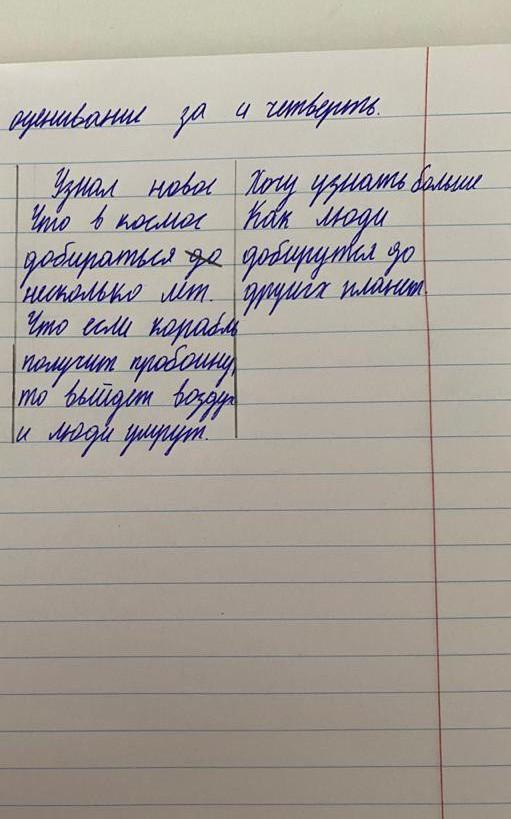 оценивание за и четверть.
Узнал новое
Что в космос
добираться до
несколько лет.
Что если корабль
получит пробоину,
то выйдет воздух
и люди умрут.
Хочу узнать больше
Как люди
доберутся до
других планет.